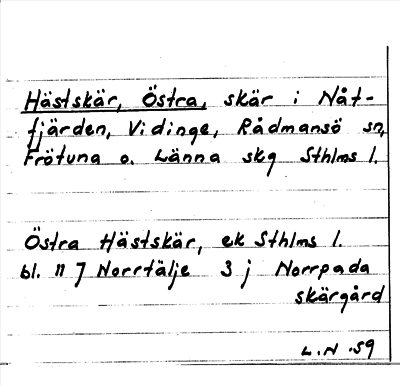 Hästskär, Östra, skär i Nåt-
fjärden, Vidinge, Rådmansö sn,
Frötuna o. Länna skg Sthlms l.
Östra Hästskär, ek Sthlms l.
bl. 11 7 Norrtälje 3 j Norrpada
skärgård
L.N. 59